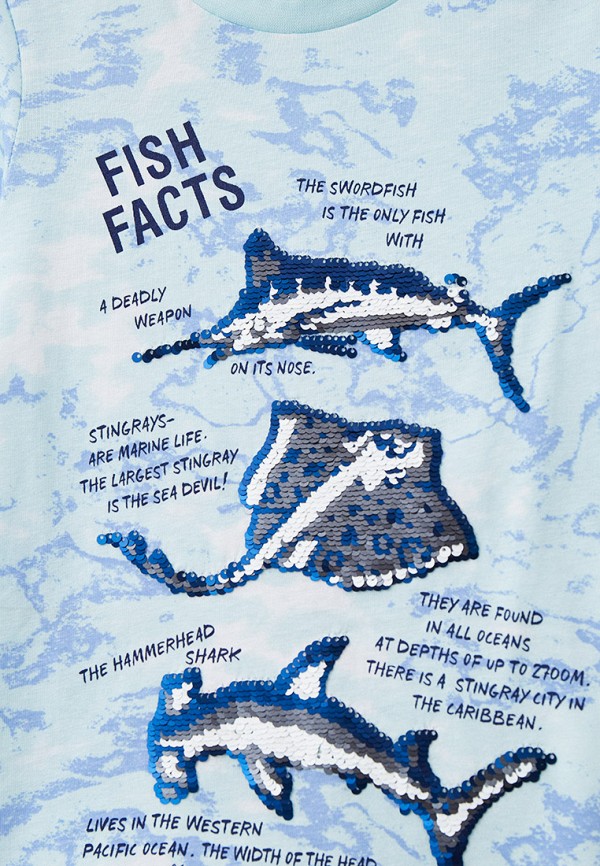 FISH
FACTS
THE SWORDFISH
IS THE ONLY FISH
WITH
A DEADLY
WEAPON
ON ITS NOSE.
STINGRAYS-
ARE MARINE LIFE.
THE LARGEST STINGRAY
IS THE SEA DEVIL!
THEY ARE FOUND
IN ALL OCEANS
AT DEPTHS OF UP TO 2700M.
THERE IS A STINGRAY CITY IN
THE CARIBBEAN.
THE HAMMERHEAD
SHARK
LIVES IN THE WESTERN
PACIFIC OCEAN. THE WIDTH OF THE HEAD